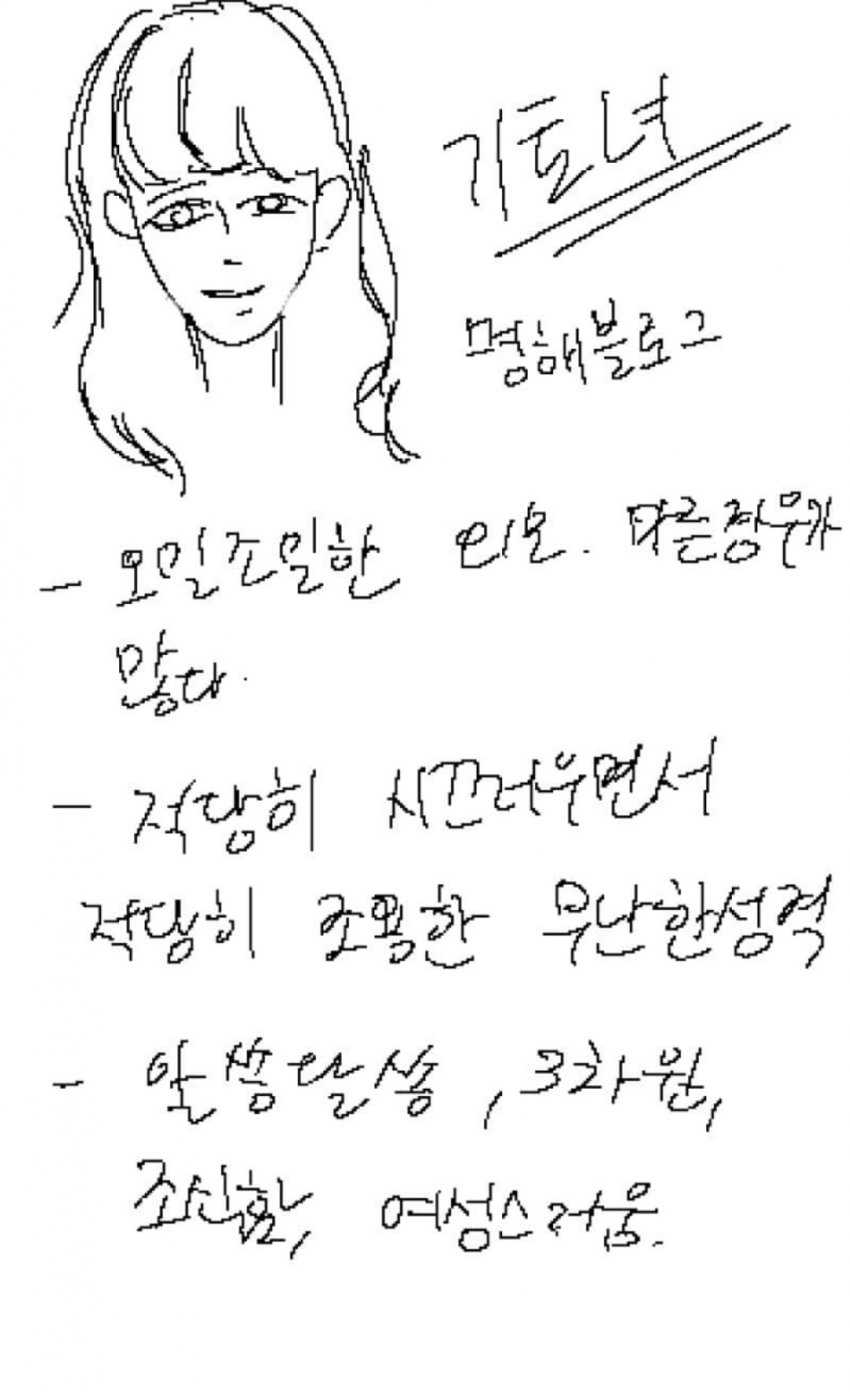 기토녀
멍해블로그
- 오밀조밀한 외모. 마른경우가
많다.
- 적당히 시끄러우면서
적당히 조용한 무난한성격
- 알쏭달쏭, 3차원,
조신함, 여성스러움.